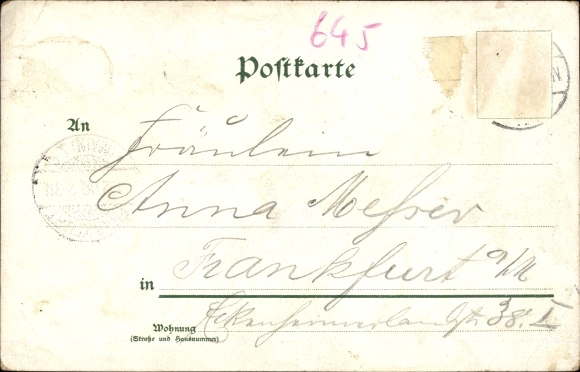 645
Postkarte
An
Fräulein
Anna Messer
in Frankfurt a/M
Wohnung
(Straße und Hausnummer)
Eckenheimerlandstr 38. II